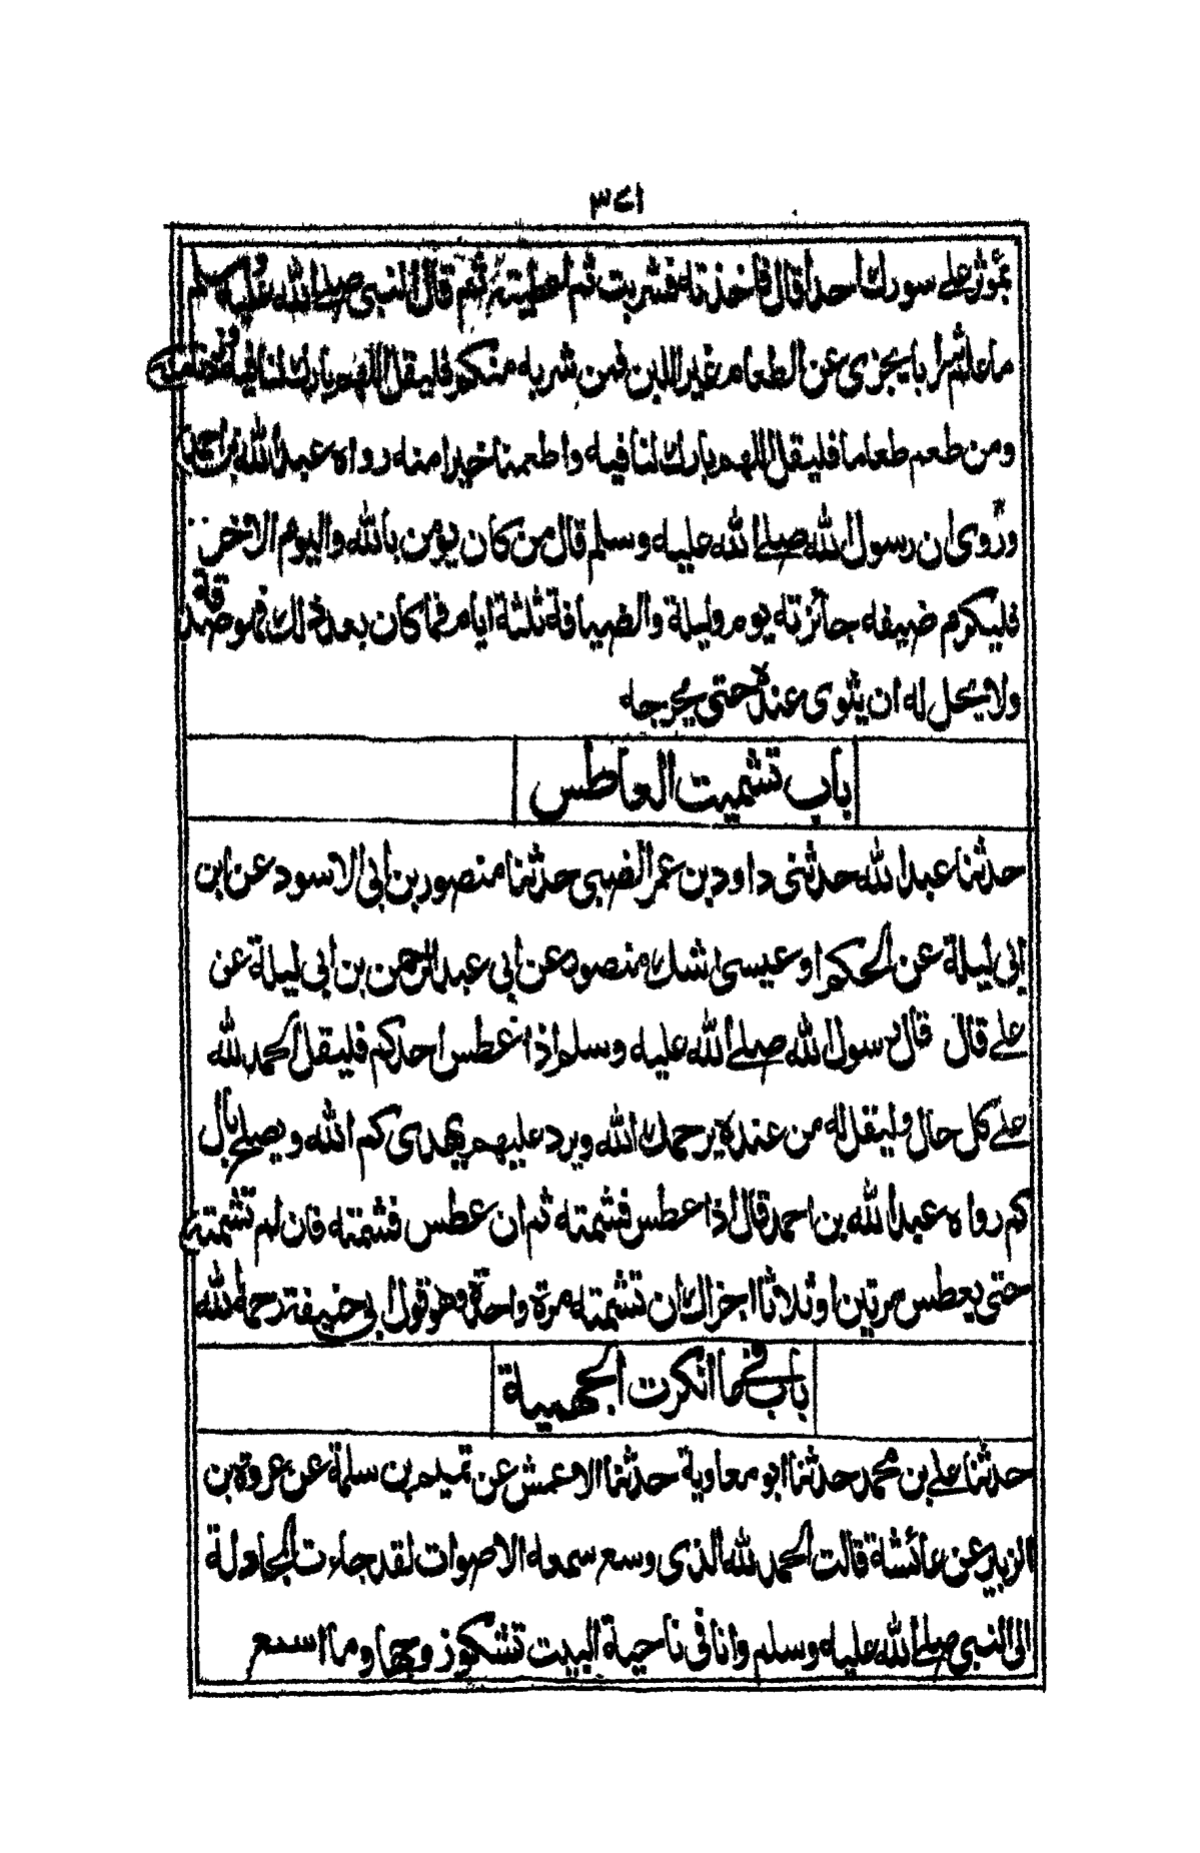 ٣٤١
بموثر على سورك احدا قال فاخذته فشربت ثم اعطيته ثم قال النبي صلے الله عليه وسلم
ما علم شرابا يجزى عن الطعام غير اللبن فمن شربه منكم فليقل اللهم بارك لنا فيه وزدنا منه
ومن طعم طعاما فليقل اللهم بارك لنا فيه واطعمنا خيرا منه رواه عبد الله بن احمد
وروى ان رسول الله صلے الله عليه وسلم قال من كان يومن بالله واليوم الاخر
فليكرم ضيفه جائزته يوم وليلة والضيافة ثلثة ايام فما كان بعد ذلك فهو صدقة
ولا يحل له ان يثوى عنده حتى يخرجه
باب تشميت العاطس
حدثنا عبد الله حدثنى داود بن عمر الضبى حدثنا منصور بن ابى الاسود عن ابن
ابى ليلة عن الحكم او عيسى شك منصور عن ابى عبد الرحمن بن ابى ليلة عن
على قال قال رسول الله صلے الله عليه وسلم اذا عطس احدكم فليقل الحمد لله
على كل حال وليقل له من عنده يرحمك الله ويرد عليهم يهدى كم الله ويصلح بال
كم رواه عبد الله بن احمد قال اذا عطس فشمته ثم ان عطس فشمته فان لم تشمته
حتى يعطس مرتين او ثلاثا اجزاك ان تشمته مرة واحدة وهو قول ابى حنيفة رحمه الله
باب فيما انكرت الجهمية
حدثنا على بن محمد حدثنا ابو معاوية حدثنا الاعمش عن تميم بن سلمة عن عروة بن
الزبير عن عائشة قالت الحمد لله الذى وسع سمعه الاصوات لقد جاءت المجادلة
الى النبى صلے الله عليه وسلم وانا فى ناحية البيت تشكو زوجها وما اسمع